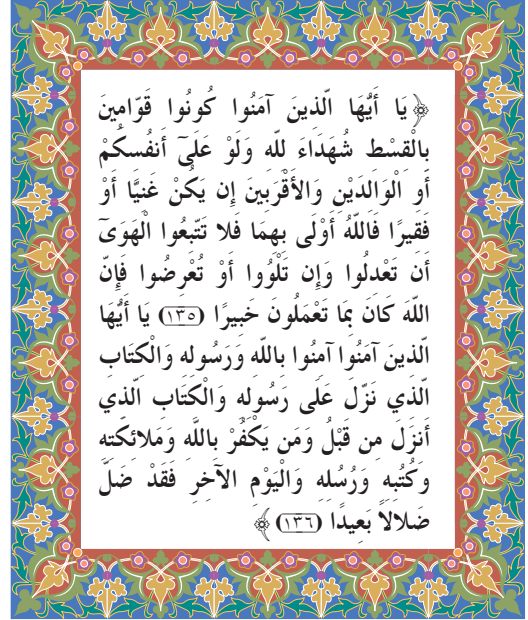 ﴿ يَا أَيُّهَا الَّذِينَ آمَنُوا كُونُوا قَوَّامِينَ
بِالْقِسْطِ شُهَدَاءَ لِلَّهِ وَلَوْ عَلَىٓ أَنفُسِكُمْ
أَوِ الْوَالِدَيْنِ وَالأَقْرَبِينَ إِن يَكُنْ غَنِيًّا أَوْ
فَقِيرًا فَاللَّهُ أَوْلَى بِهِمَا فَلا تَتَّبِعُوا الْهَوَىٓ
أَن تَعْدِلُوا وَإِن تَلْوُوا أَوْ تُعْرِضُوا فَإِنَّ
اللَّهَ كَانَ بِمَا تَعْمَلُونَ خَبِيرًا (١٣٥) يَا أَيُّهَا
الَّذِينَ آمَنُوا آمِنُوا بِاللَّهِ وَرَسُولِهِ وَالْكِتَابِ
الَّذِي نَزَّلَ عَلَى رَسُولِهِ وَالْكِتَابِ الَّذِي
أَنزَلَ مِن قَبْلُ وَمَن يَكْفُرْ بِاللَّهِ وَمَلائِكَتِهِ
وَكُتُبِهِ وَرُسُلِهِ وَالْيَوْمِ الآخِرِ فَقَدْ ضَلَّ
ضَلالاً بَعِيدًا (١٣٦) ﴾